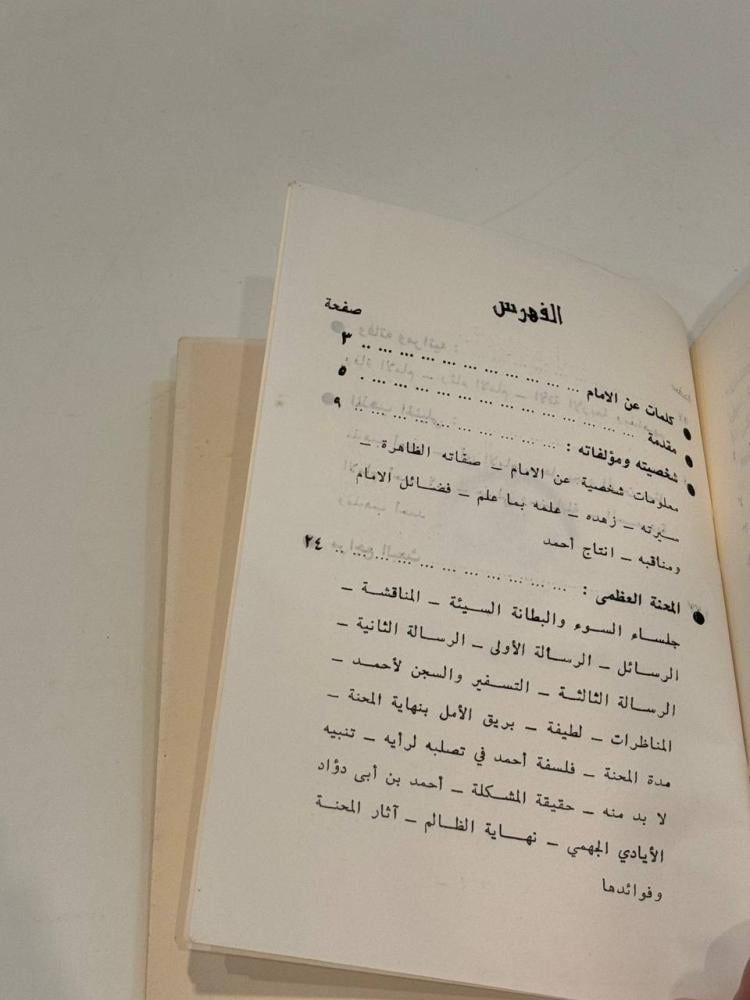 الفهرس
صفحة
● كلمات عن الامام ... ... ... ... ... ... ... ... ... .. ٣
● مقدمة ... ... ... ... ... ... ... ... ... ... ... . ٥
● شخصيته ومؤلفاته : ... ... ... ... ... ... ... .. ٩
معلومات شخصية عن الامام ـ صفاته الظاهرة ـ
سيرته ـ زهده ـ علمه بما علم ـ فضائل الامام
ومناقبه ـ انتاج أحمد
● المحنة العظمى : ... ... ... ... ... ... ... ... .. ٢٤
جلساء السوء والبطانة السيئة ـ المناقشة ـ
الرسائل ـ الرسالة الأولى ـ الرسالة الثانية ـ
الرسالة الثالثة ـ التسفير والسجن لأحمد ـ
المناظرات ـ لطيفة ـ بريق الأمل بنهاية المحنة ـ
مدة المحنة ـ فلسفة أحمد في تصلبه لرأيه ـ تنبيه
لا بد منه ـ حقيقة المشكلة ـ أحمد بن أبى دؤاد
الأيادي الجهمي ـ نهاية الظالم ـ آثار المحنة
وفوائدها